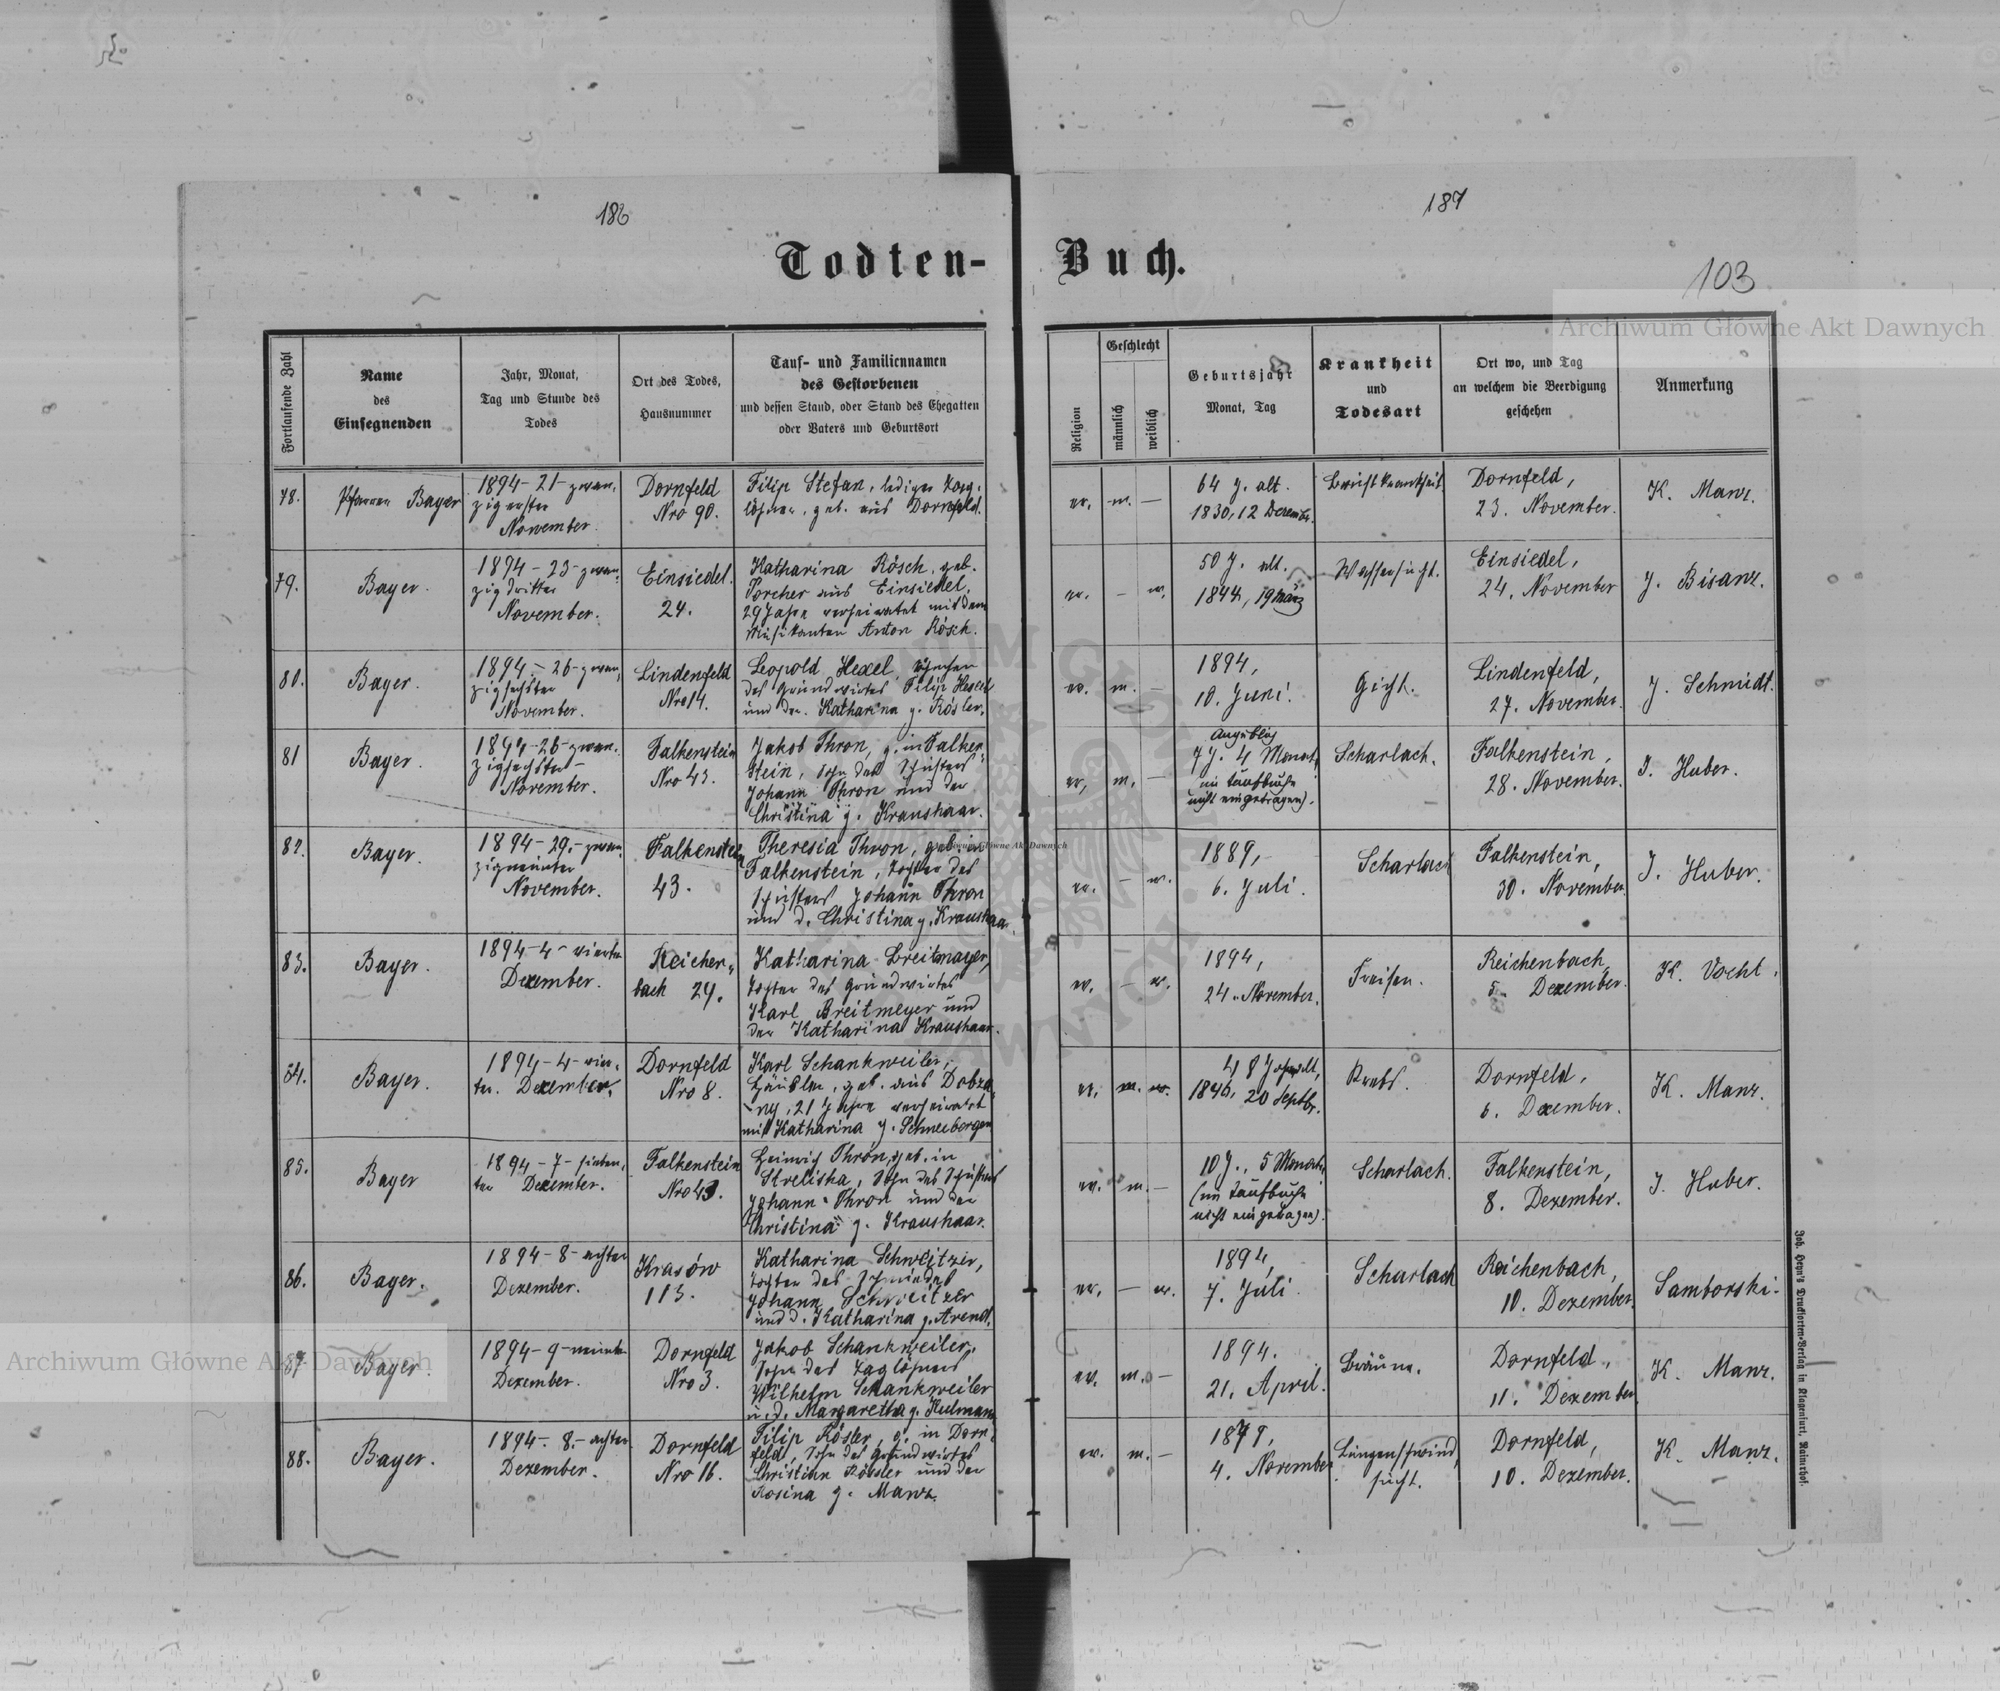 186
187
Todten-
Buch.
103
Archiwum Główne Akt Dawnych
Fortlaufende Zahl
Name
des
Einsegnenden
Jahr, Monat,
Tag und Stunde des
Todes
Ort des Todes,
Hausnummer
Tauf- und Familiennamen
des Gestorbenen
und dessen Stand, oder Stand des Ehegatten
oder Vaters und Geburtsort
Religion
Geschlecht
männlich
weiblich
Geburtsjahr
Monat, Tag
Krankheit
und
Todesart
Ort wo, und Tag
an welchem die Beerdigung
geschehen
Anmerkung
78.
Pfarrer Bayer
1894 - 21 - zwan-
zigerster
November.
Dornfeld
Nro 90.
Filip Stefan, lediger Tag-
löhner, geb. aus Dornfeld.
ev.
m.
—
64 J. alt.
1830, 12 Dezember.
Dornfeld,
23. November.
K. Manz.
79.
Bayer.
1894 - 23 - zwan-
zigdritter
November.
Einsiedel.
24.
Katharina Rösch, geb.
Porcher aus Einsiedel,
29 Jahre verheiratet mit dem
Musikanten Anton Rösch.
ev.
—
w.
50 J. alt.
1844, 19 März
Wassersucht.
Einsiedel,
24. November
J. Bisanz.
80.
Bayer.
1894. - 26 - zwan-
zigsechster
November.
Lindenfeld
Nro 14.
Leopold Hexel, Söhnchen
des Grundwirtes Filip Hexel
und der Katharina g. Rösler.
ev.
m.
—
1894,
10. Juni.
Gicht.
Lindenfeld,
27. November.
J. Schmidt.
81
Bayer.
1894 - 26 - zwan-
zigsechster -
November.
Falkenstein
Nro 43.
Jakob Thron, g. in Falken-
stein, Sohn des Schusters
Johann Thron und der
Christina g. Kraushaar.
ev.
m.
—
angeblich
7 J. 4 Monat,
im Taufbuche
nicht eingetragen).
Scharlach.
Falkenstein,
28. November.
J. Huber.
82.
Bayer.
1894 - 29. - zwan-
zigneunter
November.
Falkenstein
43.
Theresia Thron, geb. in
Falkenstein, Tochter des
Schusters Johann Thron
und d. Christina g. Kraushaar
ev.
—
w.
1889,
6. Juli.
Scharlach
Falkenstein,
30. November.
J. Huber.
83.
Bayer.
1894 - 4 - vierter
Dezember.
Reichen-
bach 24.
Katharina Breitmayer,
Tochter des Grundwirtes
Karl Breitmeyer und
der Katharina Kraushaar.
ev.
—
w.
1894,
24. November.
Fraisen.
Reichenbach,
5. Dezember.
K. Vocht.
84.
Bayer.
1894 - 4 - vier-
ter. Dezember.
Dornfeld
Nro 8.
Karl Schankweiler,
Häusler, geb. aus Dobrza-
ny, 21 Jahre verheiratet
mit Katharina g. Schneeberger
ev.
m.
48 J. alt,
1846, 20 Septbr.
Krebs.
Dornfeld,
6. Dezember.
K. Manz.
85.
Bayer
1894 - 7 - sieben-
ter Dezember.
Falkenstein
Nro 43.
Heinrich Thron, geb. in
Streliska, Sohn des Schusters
Johann Thron und der
Christina g. Kraushaar.
ev.
m.
—
10 J., 5 Monate
(im Taufbuche
nicht eingetragen).
Scharlach.
Falkenstein,
8. Dezember.
J. Huber.
86.
Bayer.
1894 - 8 - achter
Dezember.
Krasów
113.
Katharina Schweitzer,
Tochter des Schmiedes
Johann Schweitzer
und d. Katharina g. Arendt.
ev.
—
w.
1894,
7. Juli.
Scharlach
Reichenbach,
10. Dezember.
Samborski.
87
Bayer.
1894 - 9 - neunter
Dezember.
Dornfeld
Nro 3.
Jakob Schankweiler,
Sohn des Taglöhners
Wilhelm Schankweiler
u. d. Margaretha g. Kulmann
ev.
m.
—
1894.
21. April.
Bräune.
Dornfeld,
11. Dezember
K. Manz.
88.
Bayer.
1894. - 8. - achter
Dezember.
Dornfeld
Nro 16.
Filip Rösler, g. in Dorn-
feld, Sohn des Grundwirtes
Christian Rössler und der
Rosina g. Manz.
ev.
m.
—
4. November
Lungenschwind-
sucht.
Dornfeld,
10. Dezember.
K. Manz.
Joh. Heyn's Drucksorten-Verlag in Klagenfurt, Rainerhof.
Archiwum Główne Akt Dawnych
Archiwum Główne Akt Dawnych